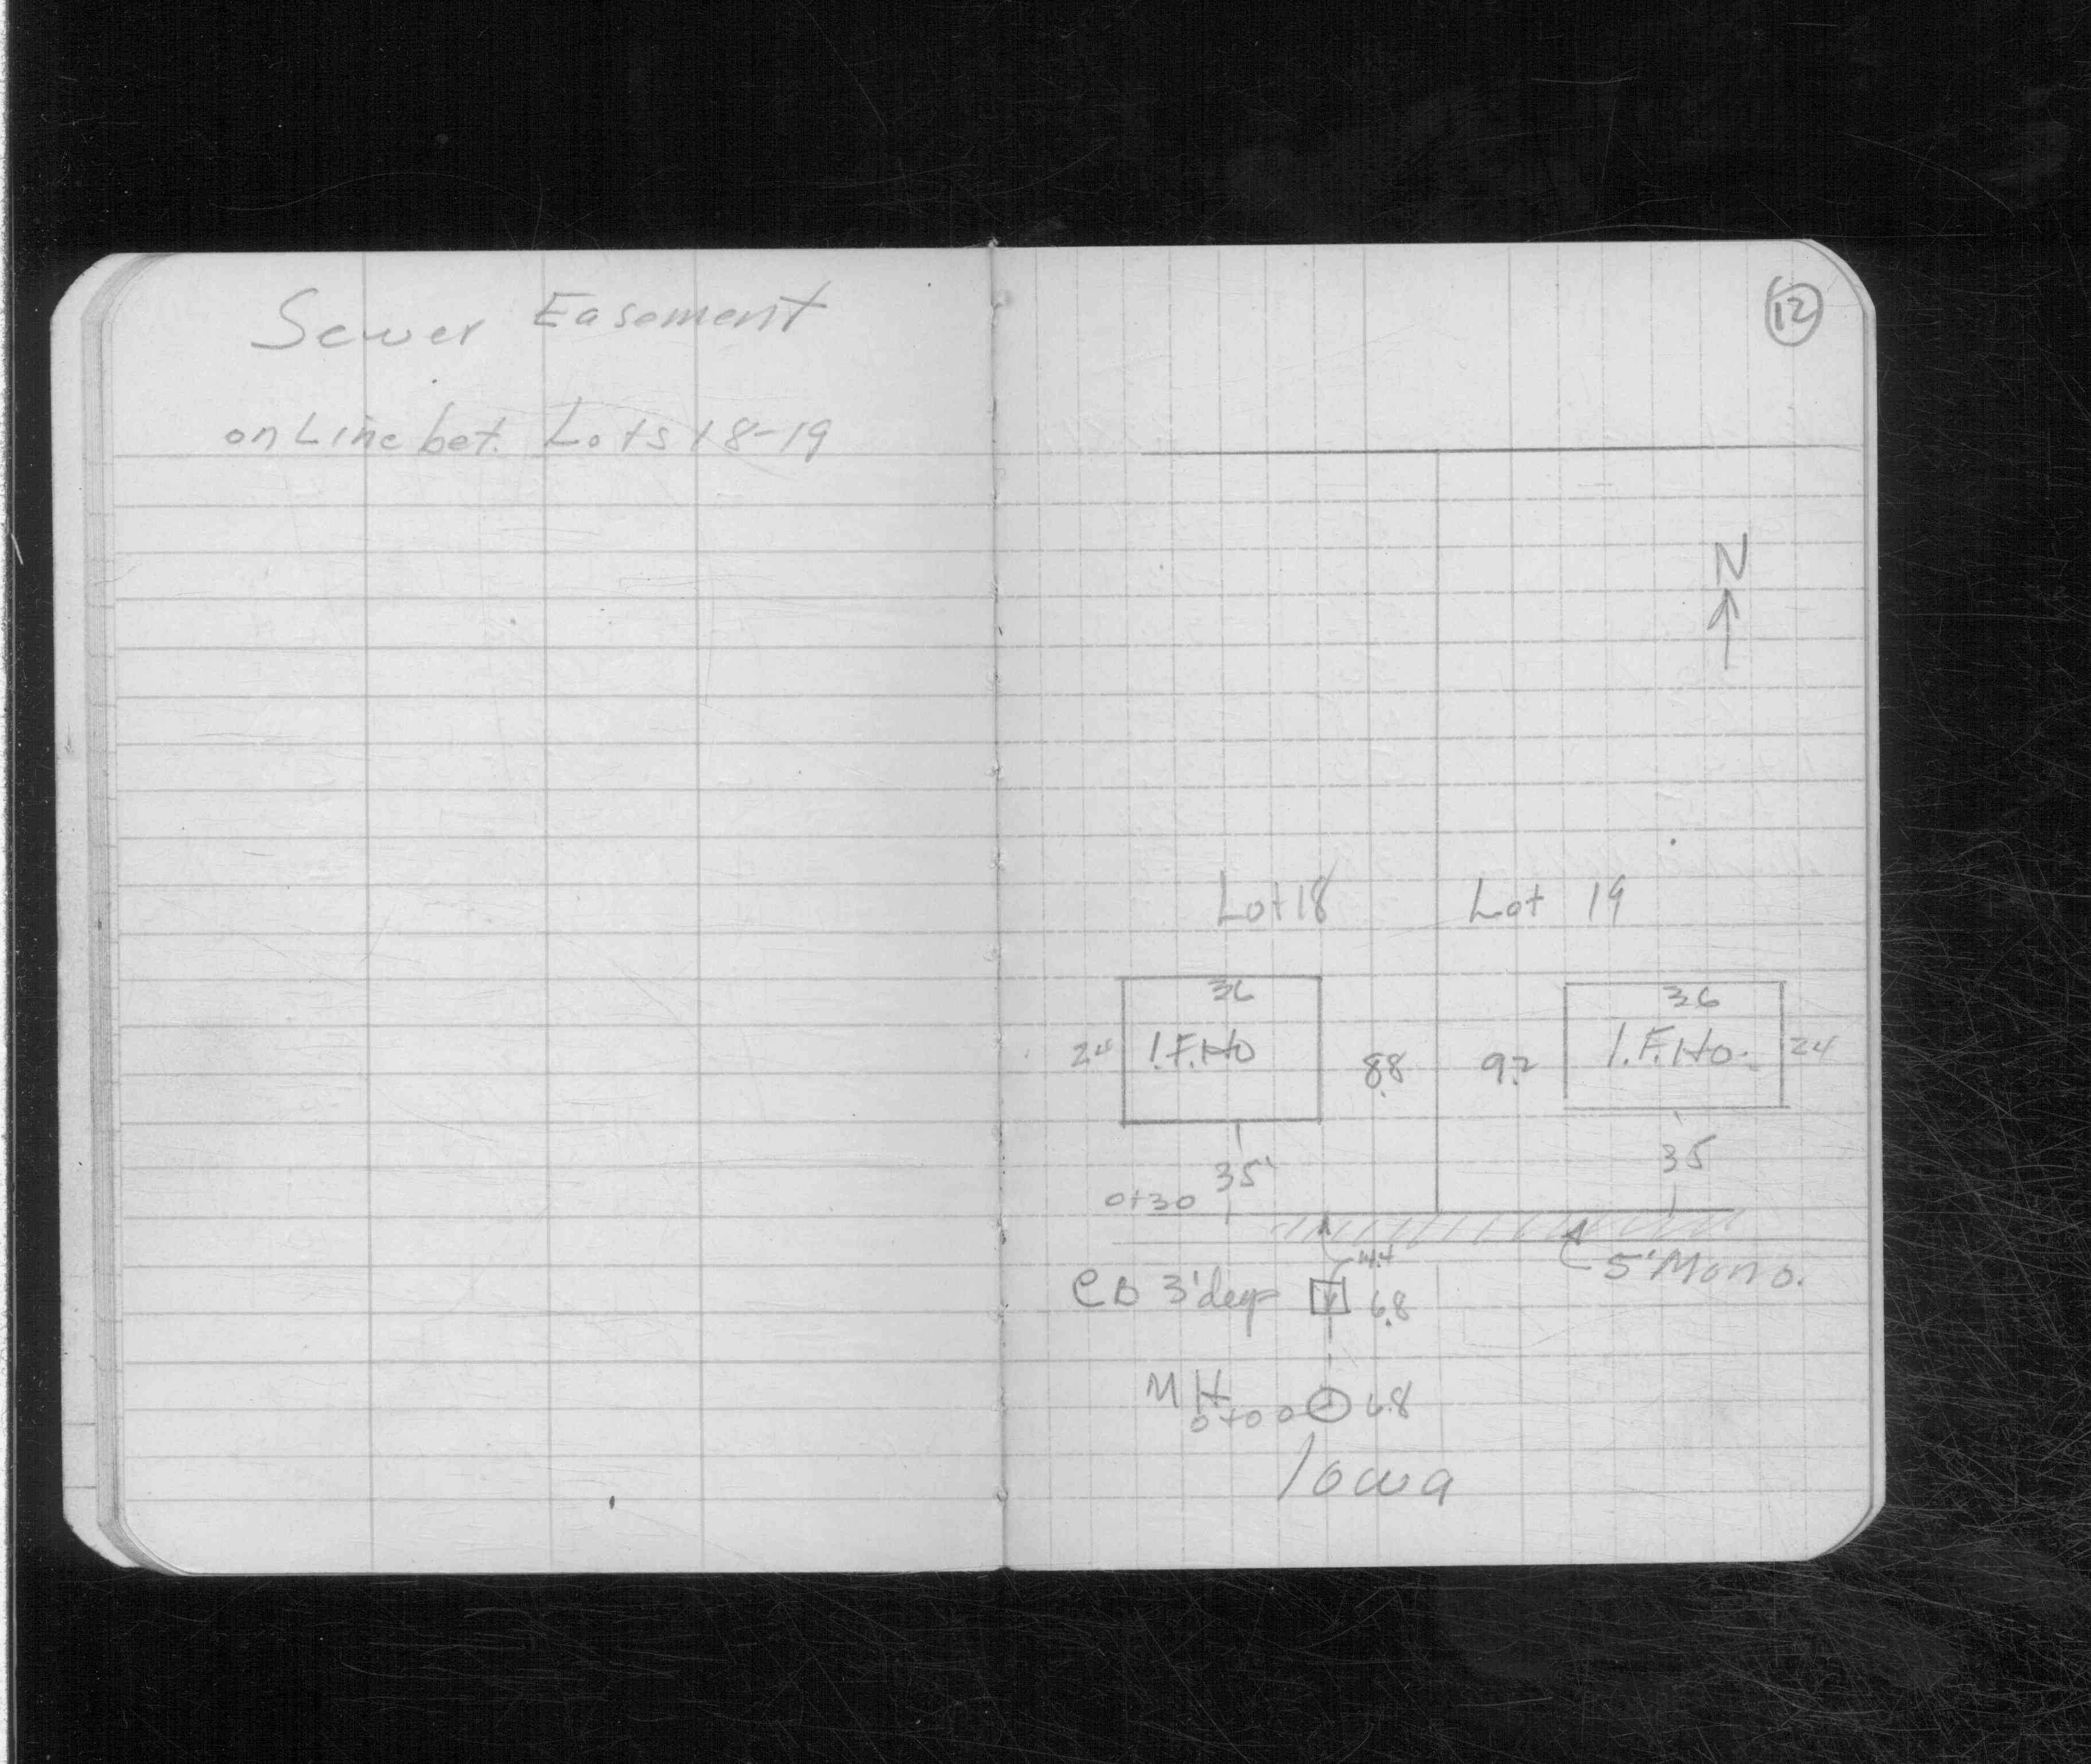 Sewer Easement
on Line bet. Lots 18-19
12
N
Lot 18 Lot 19
36 36
24 1.F.Ho 8.8 9.2 1.F.Ho. 24
35' 35
0+30
14.4
5' Mono.
CB 3' deep 6.8
MH 0+00 6.8
Iowa